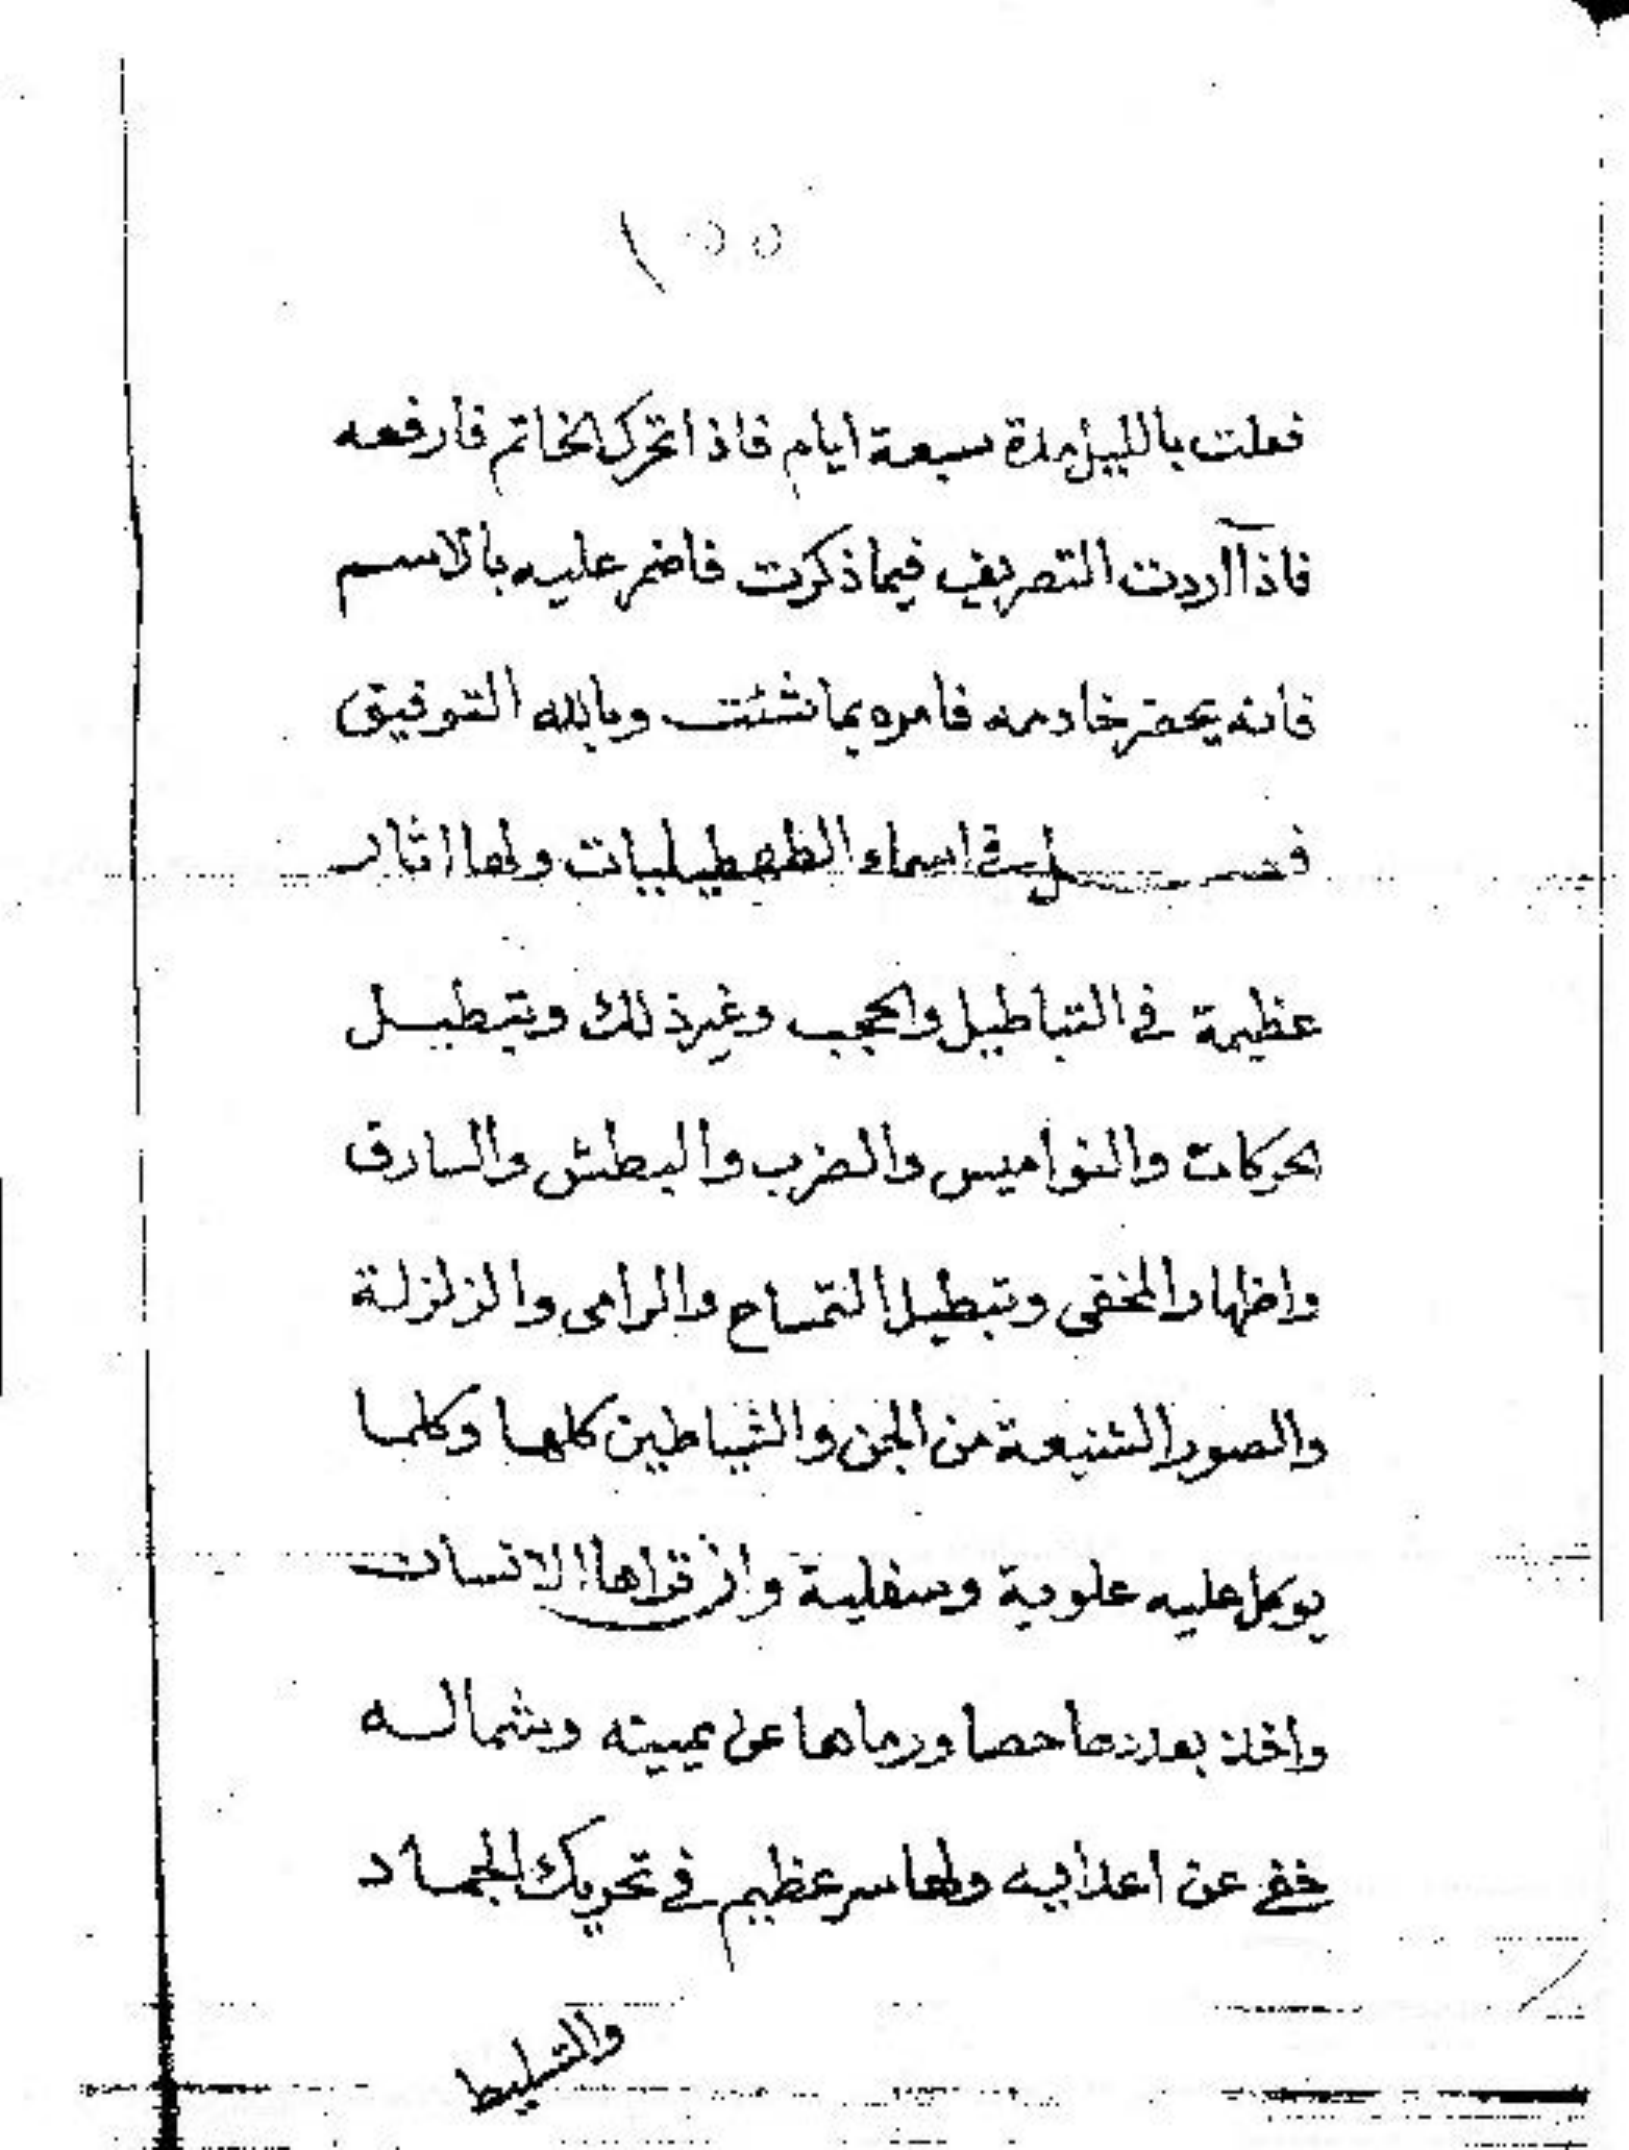 ١٥٥
فعلت بالليل مدة سبعة ايام فاذا تحرك الخاتم فارفعه
فاذآ اردت التصريف فيما ذكرت فاضمر عليه بالاسم
فانه يحضر خادمه فامره بما شئت وبالله التوفيق
فصل في اسماء الطهطيليات ولها اثار
عظيمة في التباطيل والحجب وغير ذلك وتبطيل
الحركات والنواميس والضرب والبطش والسارق
واظهار المخفى وتبطيل التمساح والرامى والزلزلة
والصور الشنيعة من الجن والشياطين كلها وكلما
يوكل عليه علوية وسفلية وان قراها الانسان
واخذ بعددها حصا ورماها عن يمينه وشماله
خفى عن اعدايه ولها سر عظيم في تحريك الجماد
والتسليط